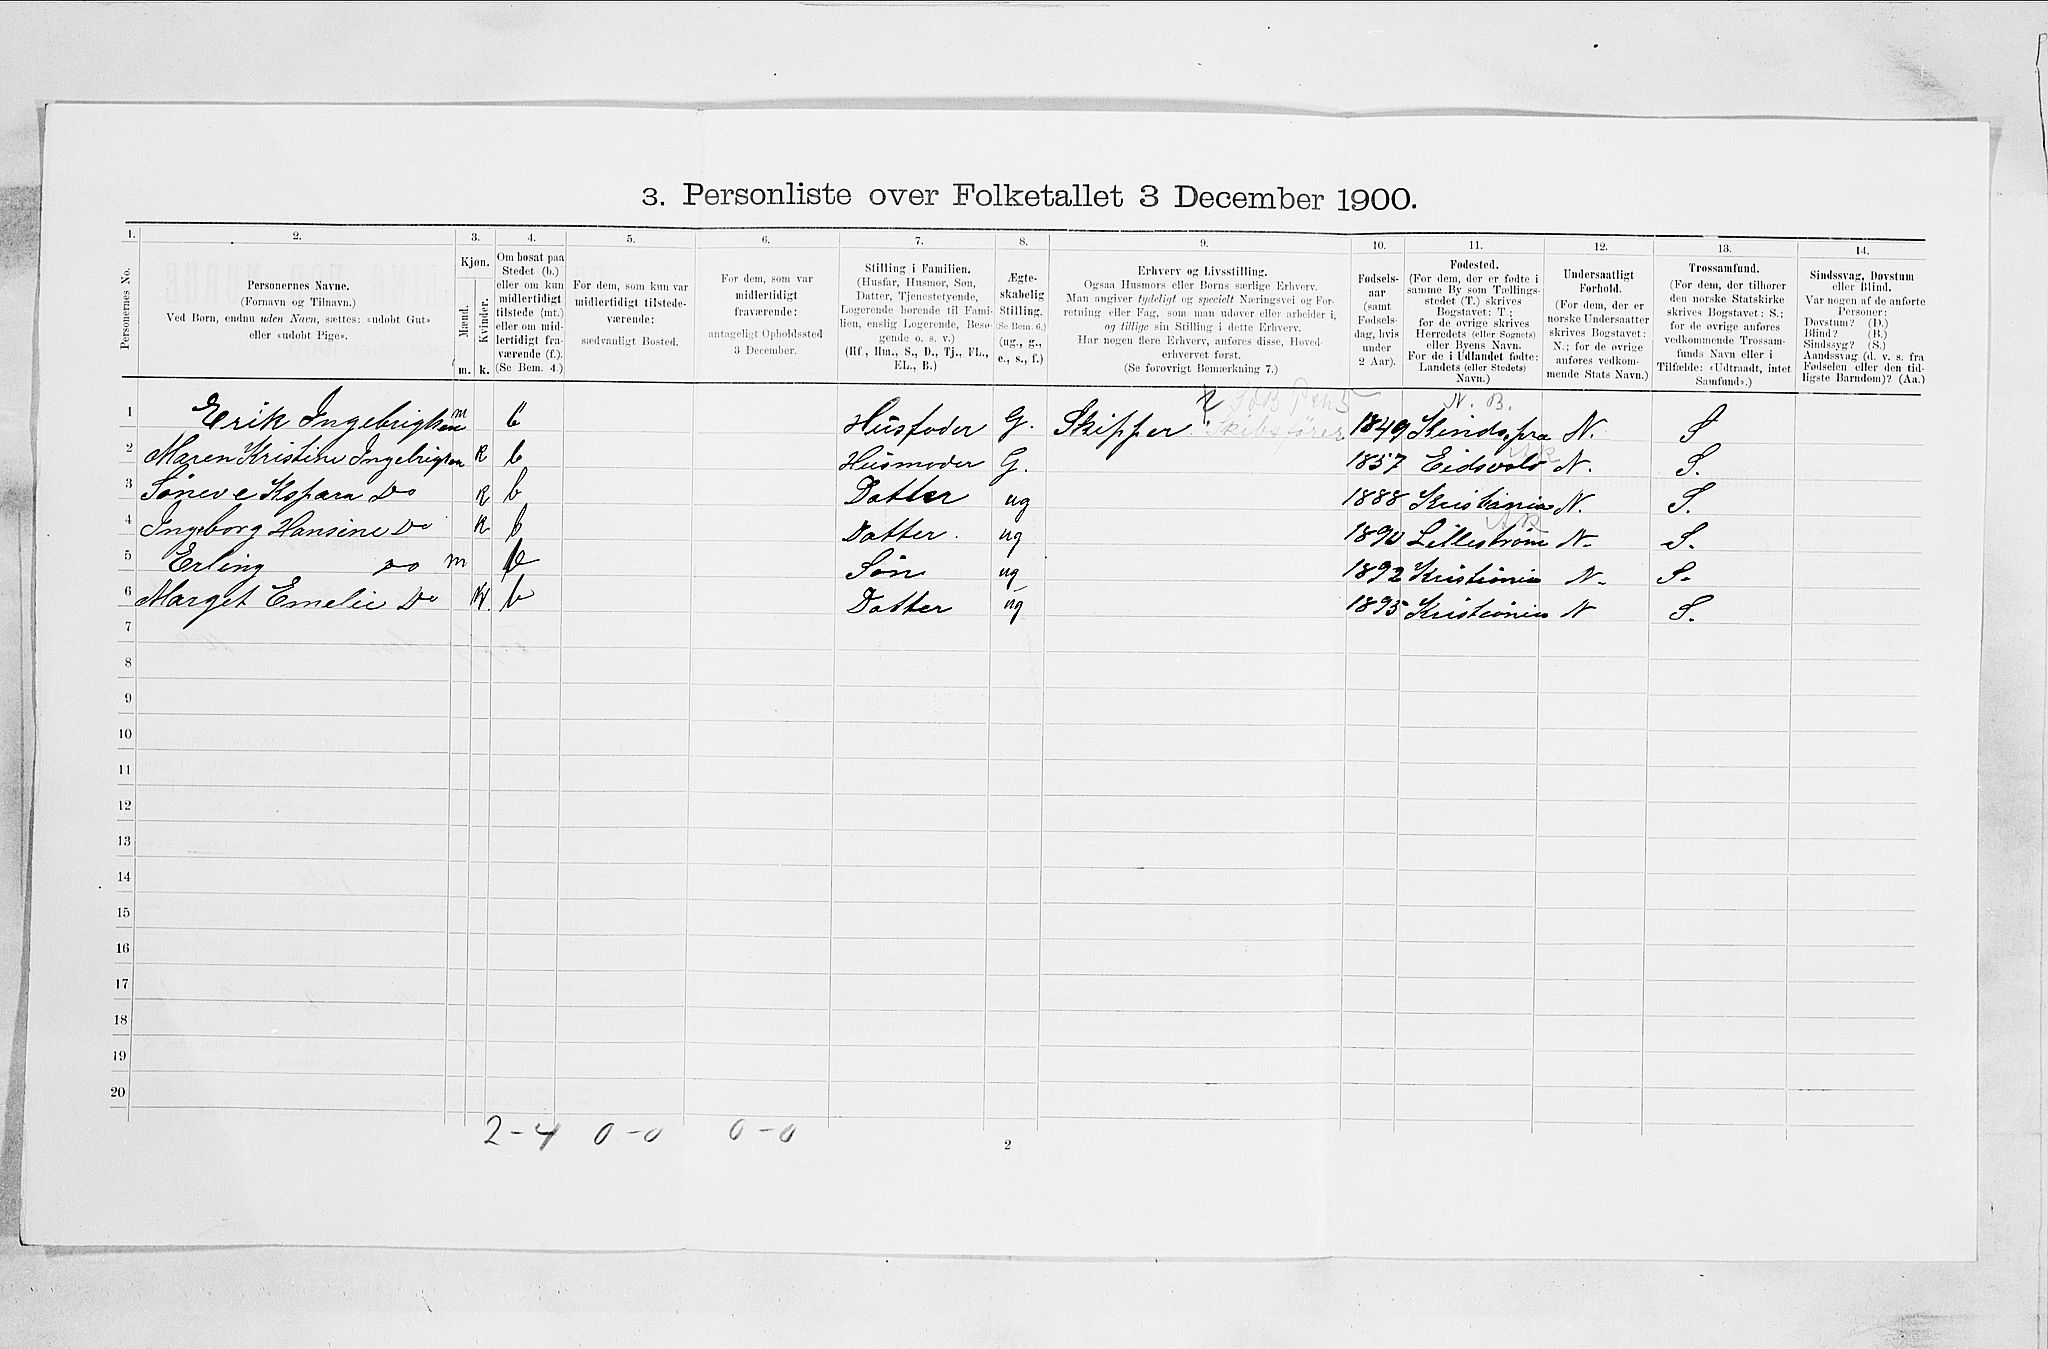 3. Personliste over Folketallet 3 December 1900.
1. 2. 3. 4. 5. 6. 7. 8. 9. 10. 11. 12. 13. 14.
Personernes No.
Personernes Navne.
(Fornavn og Tilnavn.)
Ved Børn, endnu uden Navn, sættes: «udøbt Gut»
eller «udøbt Pige».
Kjøn.
Mænd.
Kvinder.
m. k.
Om bosat paa
Stedet (b.)
eller om kun
midlertidigt
tilstede (mt.)
eller om mid-
lertidigt fra-
værende (f.).
(Se Bem. 4.)
For dem, som kun var
midlertidigt tilstede-
værende:
sædvanligt Bosted.
For dem, som var
midlertidigt
fraværende:
antageligt Opholdssted
3 December.
Stilling i Familien.
(Husfar, Husmor, Søn,
Datter, Tjenestetyende,
Logerende hørende til Fami-
lien, enslig Logerende, Besø-
gende o. s. v.)
(Hf., Hm., S., D., Tj., FL.,
EL., B.)
Ægte-
skabelig
Stilling.
(Se Bem. 6.)
(ug., g.,
e., s., f.)
Erhverv og Livsstilling.
Ogsaa Husmors eller Børns særlige Erhverv.
Man angiver tydeligt og specielt Næringsvei og For-
retning eller Fag, som man udøver eller arbeider i,
og tillige sin Stilling i dette Erhverv.
Har nogen flere Erhverv, anføres disse, Hoved-
erhvervet først.
(Se forøvrigt Bemærkning 7.)
Fødsels-
aar
(samt
Fødsels-
dag, hvis
under
2 Aar).
Fødested.
(For dem, der er fødte i
samme By som Tællings-
stedet (T.) skrives
Bogstavet: T.;
for de øvrige skrives
Herredets (eller Sognets)
eller Byens Navn.
For de i Udlandet fødte:
Landets (eller Stedets)
Navn.)
Undersaatligt
Forhold.
(For dem, der er
norske Undersaatter
skrives Bogstavet:
N.; for de øvrige
anføres vedkom-
mende Stats Navn.)
Trossamfund.
(For dem, der tilhører
den norske Statskirke
skrives Bogstavet: S.;
for de øvrige anføres
vedkommende Trossam-
funds Navn eller i
Tilfælde: «Udtraadt, intet
Samfund».)
Sindssvag, Døvstum
eller Blind.
Var nogen af de anførte
Personer:
Døvstum? (D.)
Blind? (B.)
Sindssyg? (S.)
Aandssvag (d. v. s. fra
Fødselen eller den tid-
ligste Barndom)? (Aa.)
N. B.
1 Erik Ingebrigtsen m b Husfader G. Skipper Skibsfører 1849 N. S
2 Maren Kristine Ingebrigtsen K b Husmoder G. 1857 Eidsvold N. S.
3 Do K b Datter ug 1888 Kristiania N. S.
Ak
4 Ingeborg Hansine Do K b Datter. ug 1890 Lillestrøm N. S.
5 Erling Do m b Søn ug 1892 Kristiania N. S.
6 Marget Emelie Do K. b Datter ug 1895 Kristiania N S.
7
8
9
10
11
12
13
14
15
16
17
18
19
20
2-4 0-0 0-0
2